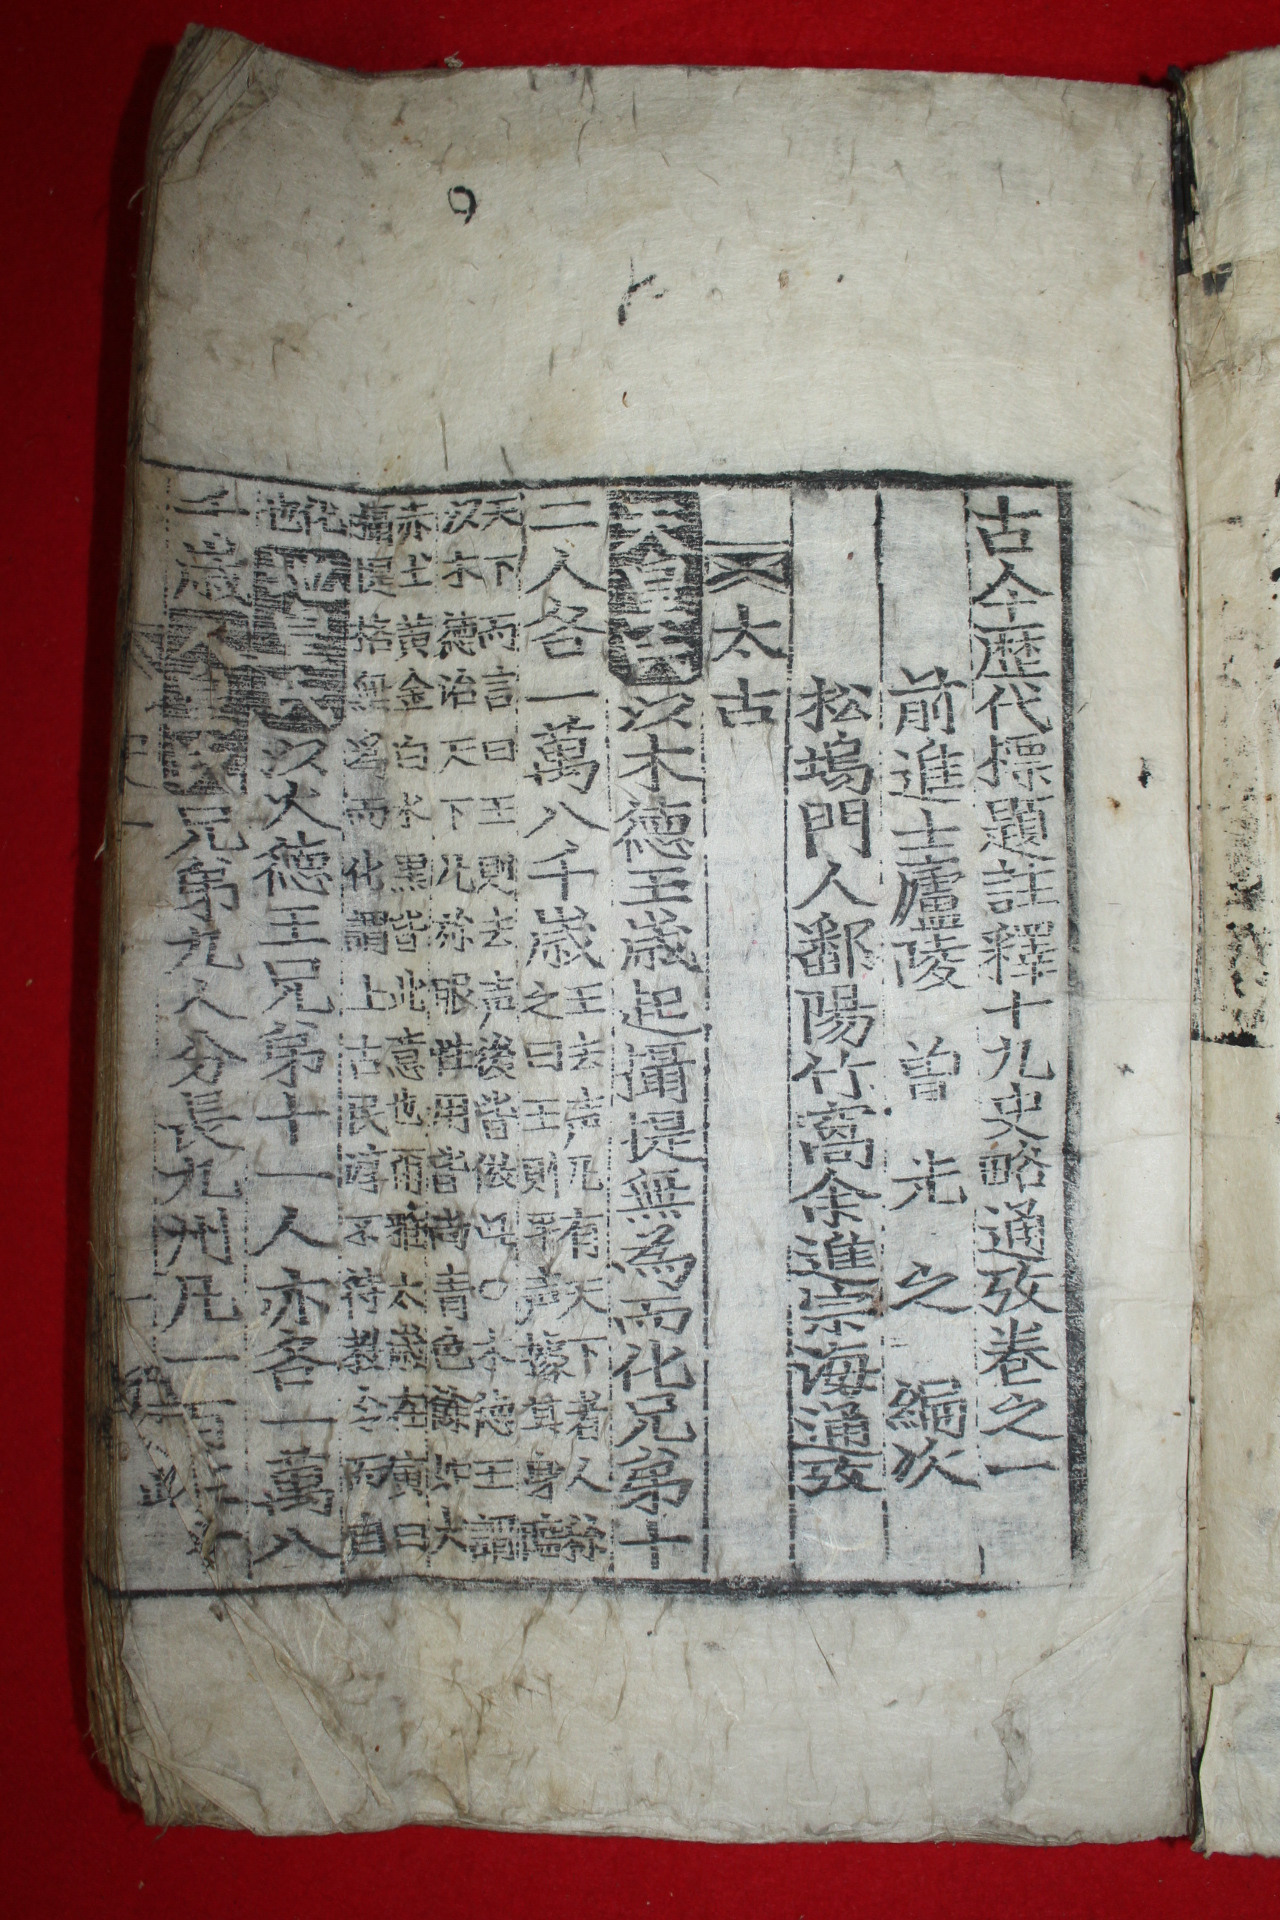 古今歷代標題註釋十九史略通攷卷之一
前進士廬陵 曾 先 之 編次
松塢門人鄱陽竹窩余進宗海通攷
太古
天皇氏以木德王歲起攝提無爲而化兄弟十
二人各一萬八千歲
王去声凡有天下者人称
之曰王則平声據其身臨
天下而言曰王則去声後皆倣此○木德王謂
以木德治天下凡称服牲用皆尚青色餘如火
赤土黃金白水黑皆此意也爾雅太歲在寅曰
攝提格無爲而化謂上古民淳不待敎令而自
化
也
地皇氏以火德王兄弟十一人亦各一萬八
千歲人皇氏兄弟九人分長九州凡一百五十